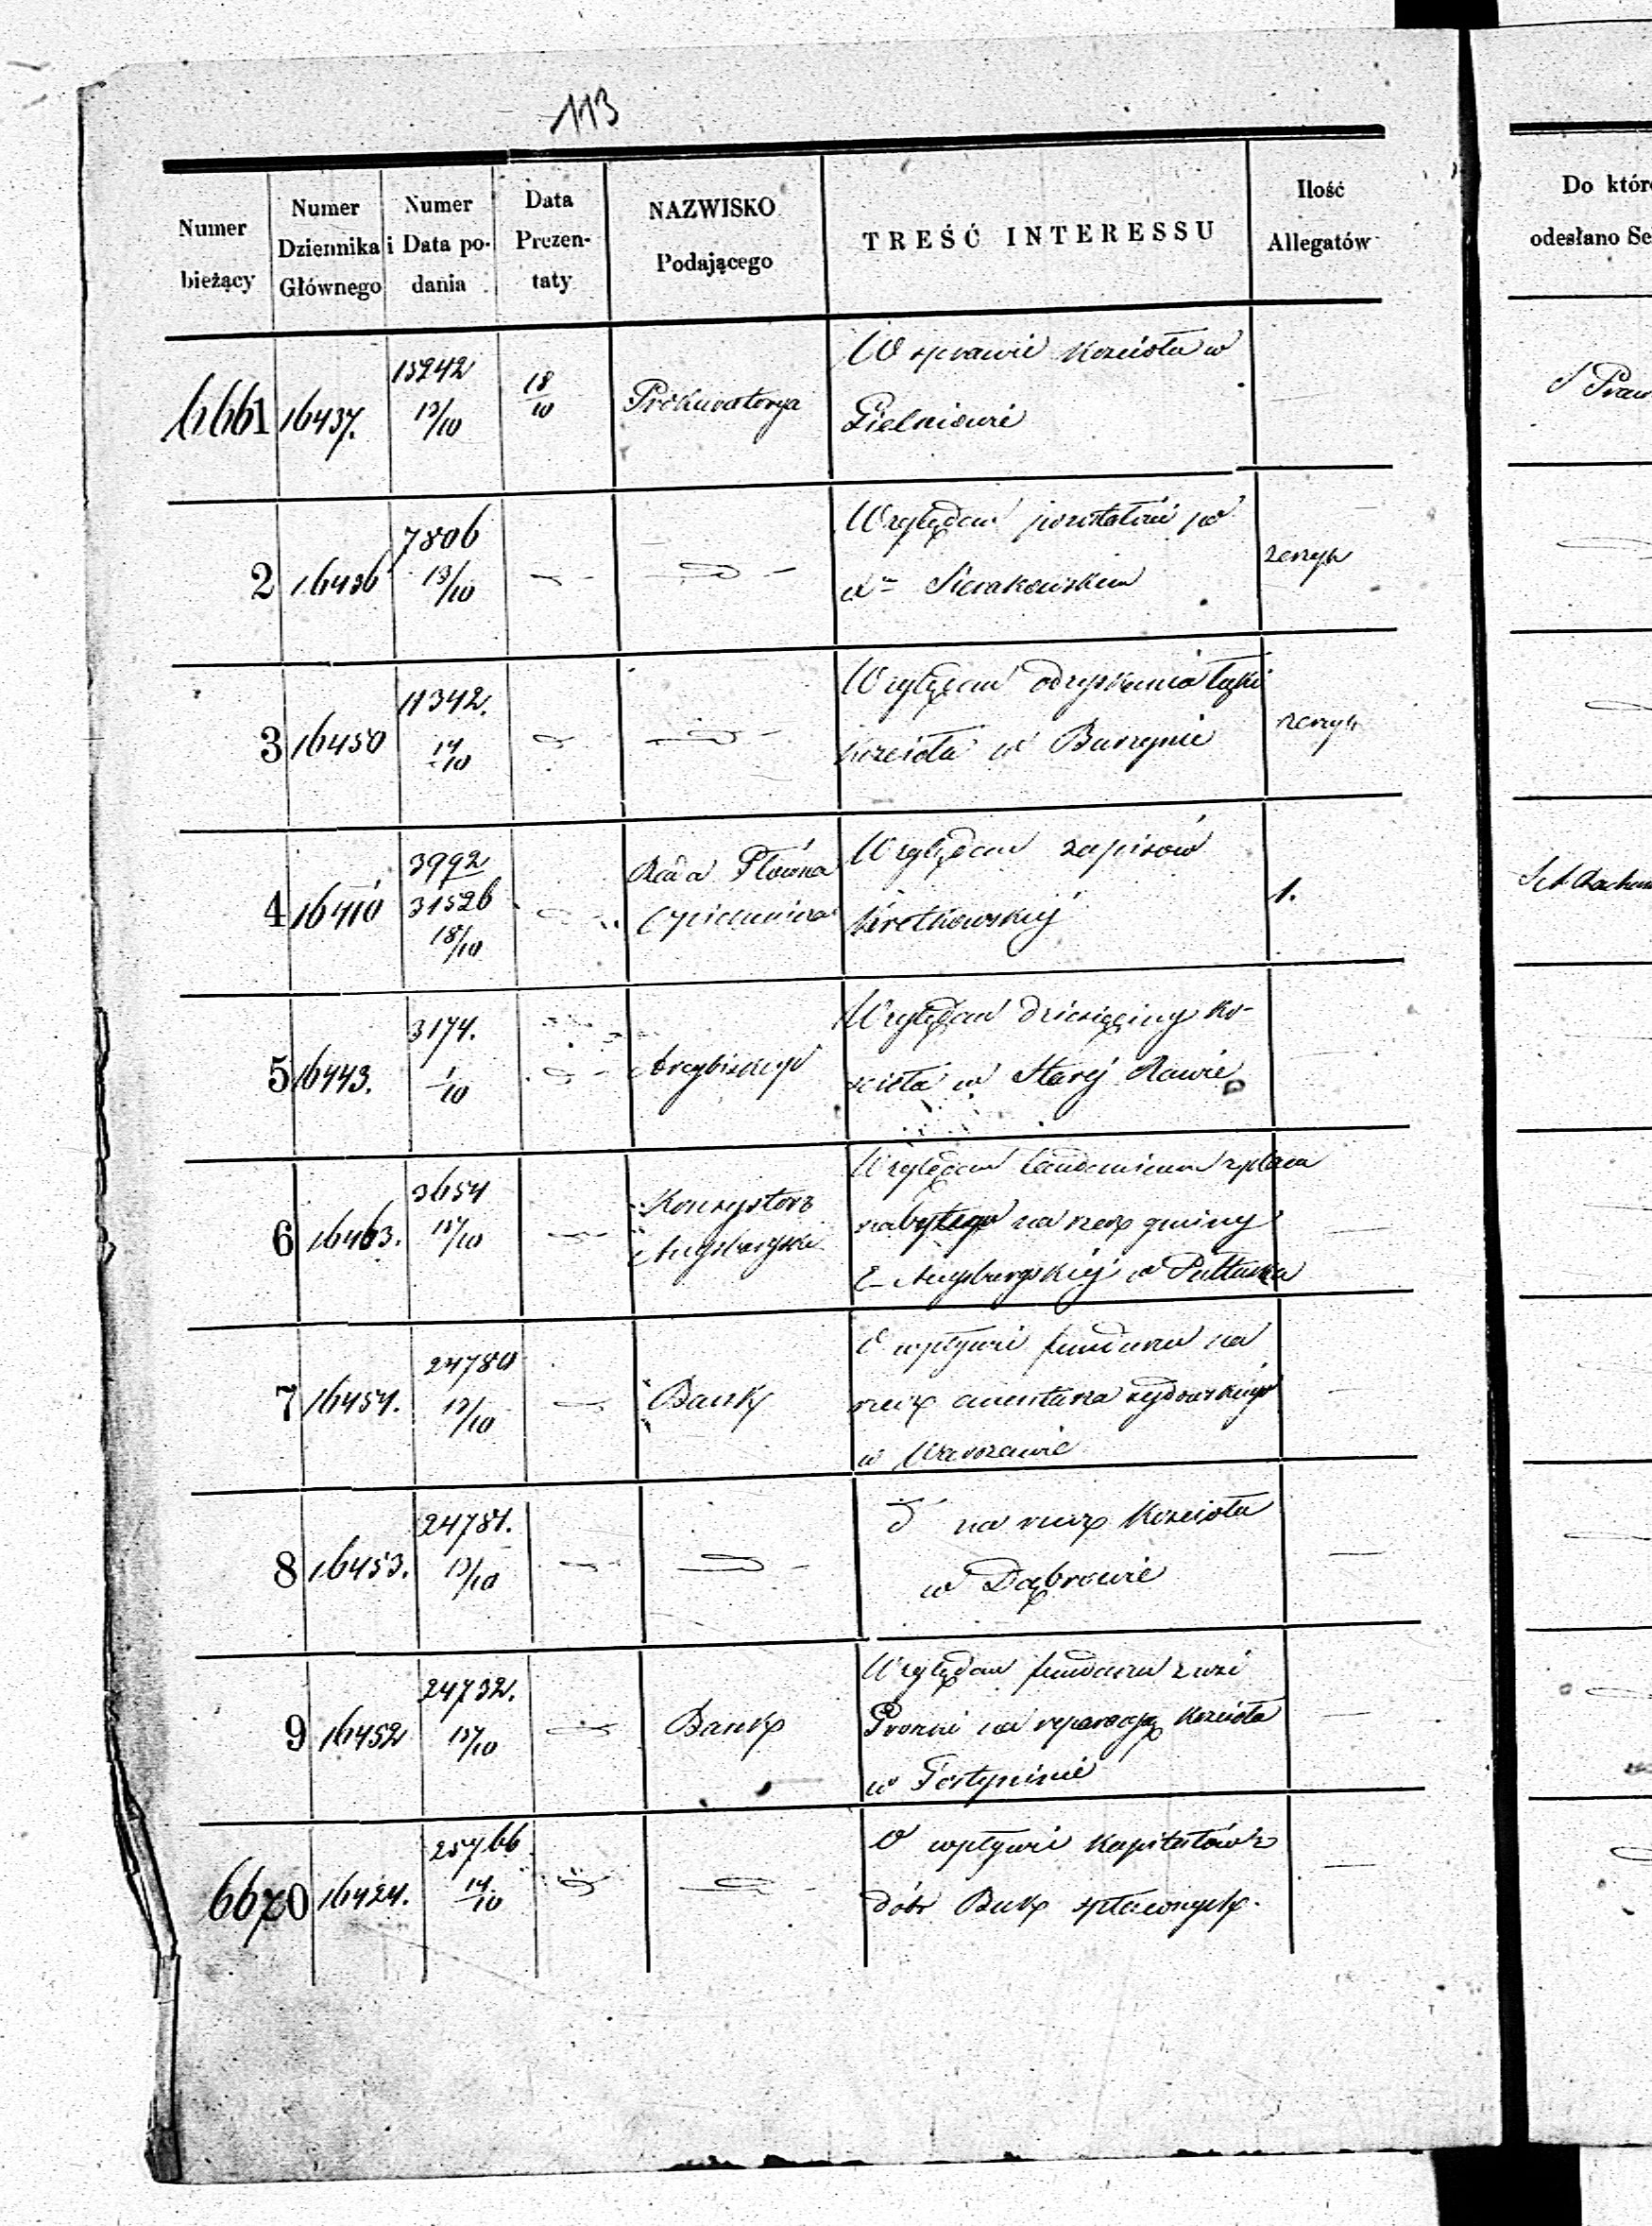 113
Numer bieżący
Numer Dziennika Głównego
Numer i Data podania
Data Prezentaty
NAZWISKO Podającego
TREŚĆ INTERESSU
Ilość Allegatów
Do któr
odesłano Se
6661 16437. 15242 13/10 18/10 Prokuratorya
W sprawie Kościoła w
Gielniowie
S Praw
2 16436 7806 13/10
Względem pozostałości po
Sierakowskim
zeszyt
3 16450 11342. 14/10
Względem odzyskania łąki
kościoła w Burzynie
zeszyt
4 16410 3992 31526 18/10 Rada Główna
Opiekuńcza
Względem zapisów
Kretkowskiej
1.
5 16443. 3174. 1/10 Arcybiskup
Względem dziesięciny ko-
scioła w Starej Rawie
6 16463. 3654 15/10 Konsystorz
Augsburgski
Względem laudemium z placu
nabytego na rzecz gminy
E. Augsburgskiej w Pułtusku
7 16454. 24780 13/10 Bank
O wpływie funduszu na
rzecz cmentarza żydowskiego
w Warszawie
8 16453. 24781. 13/10
na rzecz Kościoła
w Dąbrowie
9 16452 24732. 13/10 Bank
Względem funduszu z wsi
na reparacją Kościoła
w Gostyninie
6670 16424. 25766 14/10
O wpływie Kapitałów z
dóbr Buk spłaconych.